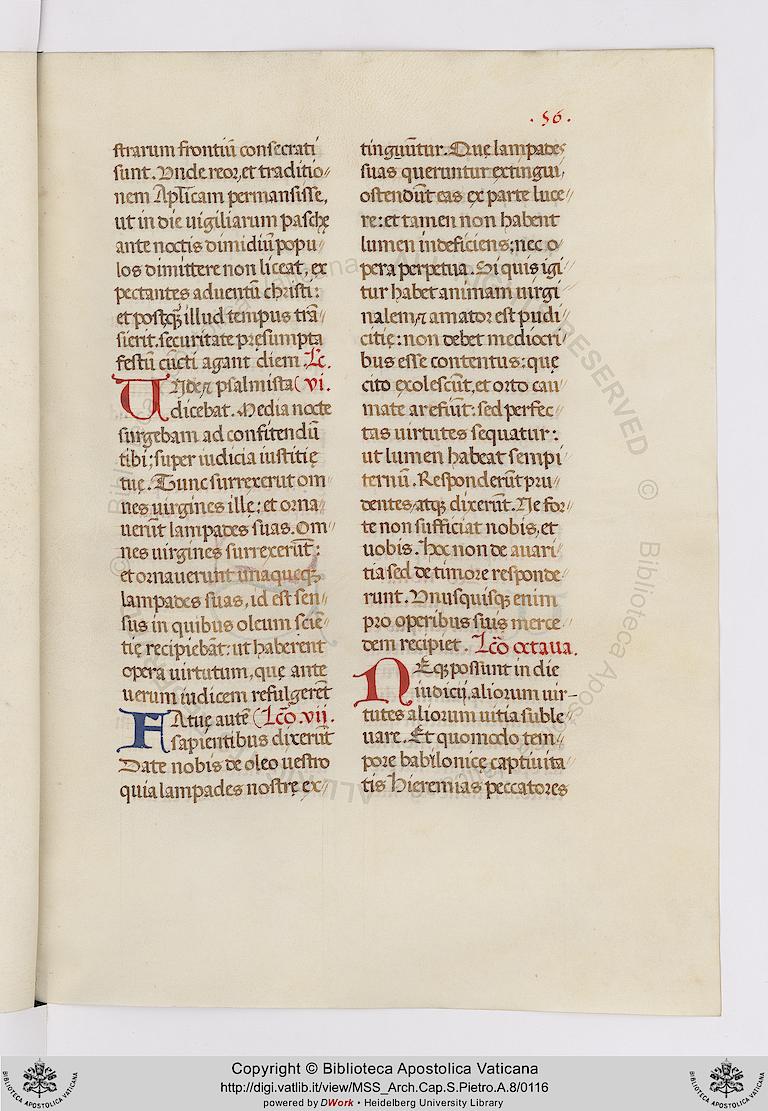 . 56 .
strarum frontiũ consecrati
sunt. Vnde reor, et traditio//
nem Apl̃icam permansisse,
ut in die uigiliarum paschę
ante noctis dimidiũ popu//
los dimittere non liceat, ex
pectantes aduentũ christi:
et postq̃ illud tempus trã//
sierit, securitate pręsumpta
festũ cũcti agant diem. Lc̃.
VNde ⁊ psalmista (vi.
dicebat. Media nocte
surgebam ad confitendũ
tibi; super iudicia iustitię
tuę. Tunc surrexerũt om//
nes uirgines illę: et orna//
uerũt lampades suas. Om//
nes uirgines surrexerũt:
et ornauerunt unaqueq;
lampades suas, id est sen//
sus in quibus oleum scie//
tię recipiebãt: ut haberent
opera uirtutum, quę ante
uerum iudicem refulgerẽt
FAtuę autẽ (Lcõ. vii.
sapientibus dixerũt
Date nobis de oleo uestro
quia lampades nostrę ex//
tinguũtur. Quę lampades
suas queruntur extingui,
ostendũt eas ex parte luce//
re: et tamen non habent
lumen indeficiens; nec o//
pera perpetua. Si quis igi//
tur habet animam uirgi//
nalem, ⁊ amator est pudi//
citię: non debet mediocri//
bus esse contentus: quę
cito exolescũt, et orto cau//
mate arefiũt: sed perfec//
tas uirtutes sequatur:
ut lumen habeat sempi//
ternũ. Responderũt pru//
dentes, atq; dixerũt. Ne for//
te non sufficiat nobis, et
uobis. hoc non de auari//
tia sed de timore responde//
runt. Vnusquisq; enim
pro operibus suis merce//
dem recipiet. Lcõ octaua.
NEq; possunt in die
iudicij, aliorum uir-
tutes aliorum uitia suble//
uare. Et quomodo tem//
pore babilonicę captiuita//
tis hieremias peccatores
Copyright © Biblioteca Apostolica Vaticana
http://digi.vatlib.it/view/MSS_Arch.Cap.S.Pietro.A.8/0116
powered by DWork • Heidelberg University Library
BIBLIOTECA APOSTOLICA VATICANA
BIBLIOTECA APOSTOLICA VATICANA